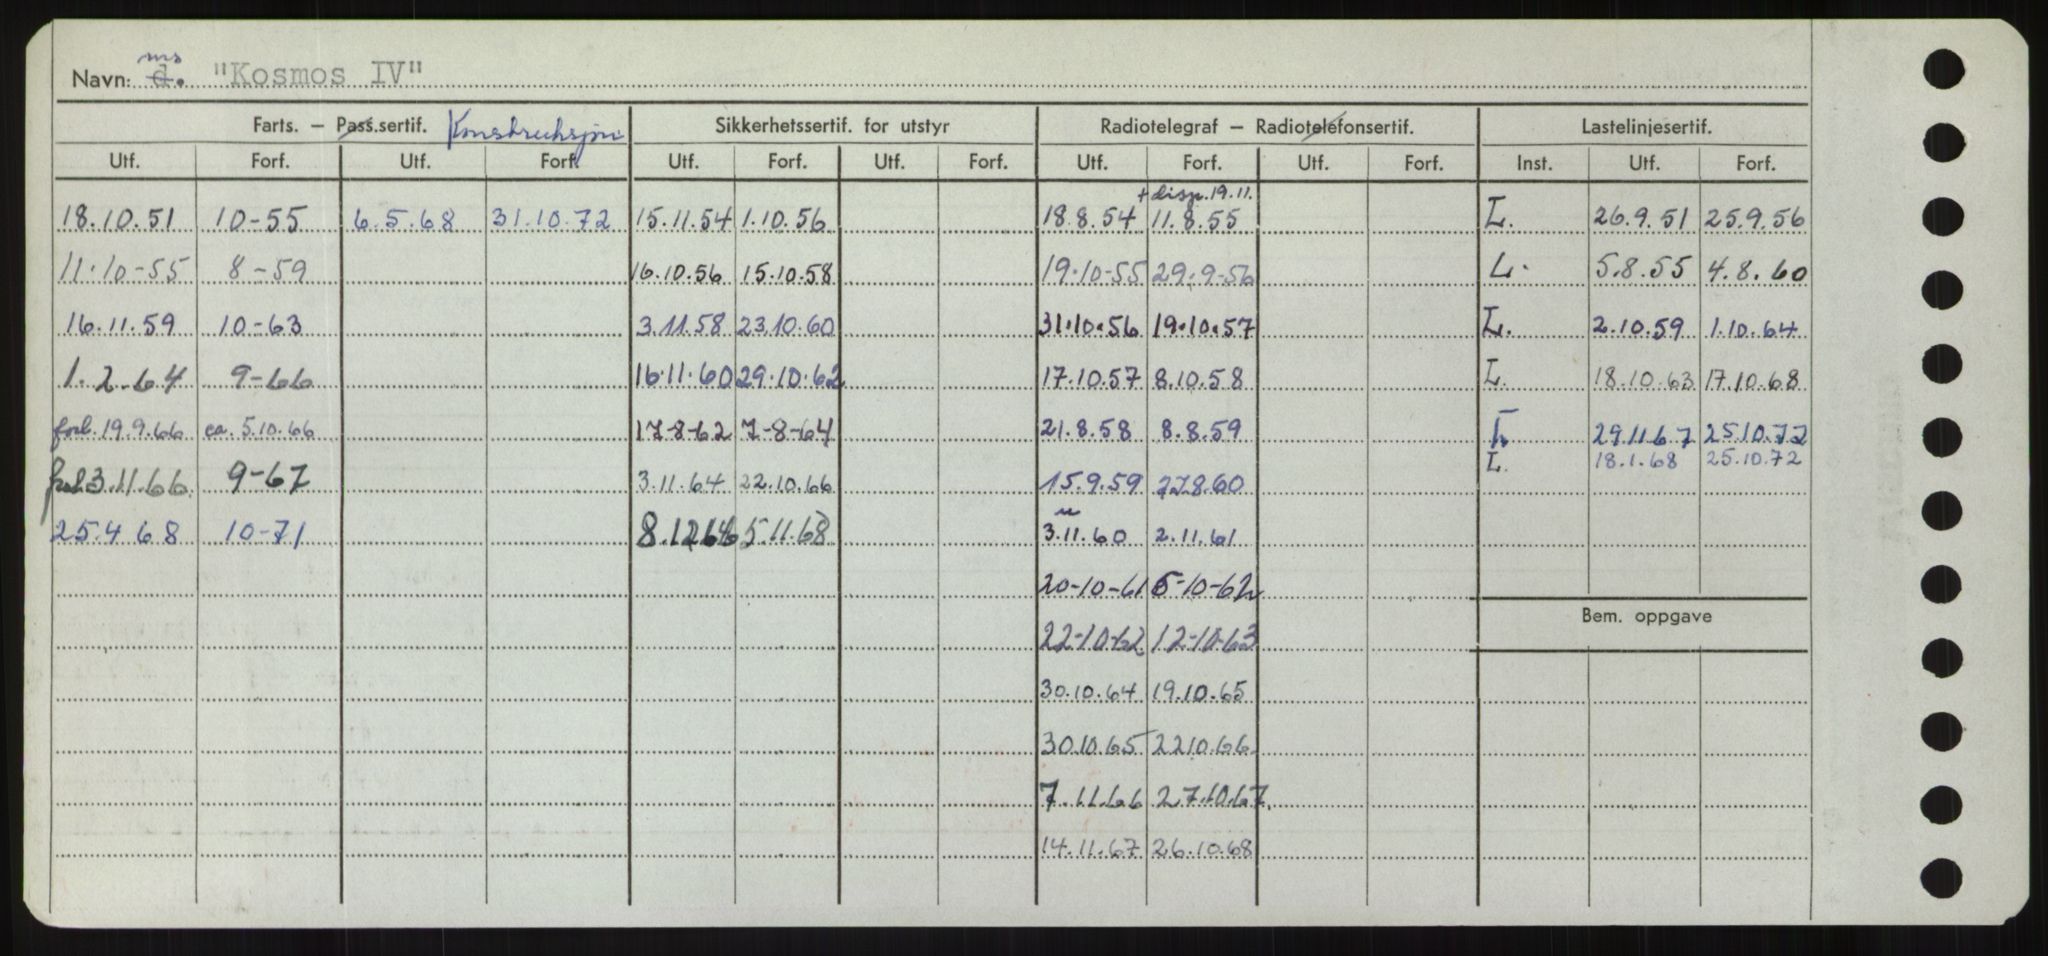 ms
Navn: d. "Kosmos IV"
Farts. – Pass.sertif. Konstruksjon Sikkerhetssertif. for utstyr Radiotelegraf – Radiotelefonsertif. Lastelinjesertif.
Utf. Forf. Utf. Forf. Utf. Forf. Utf. Forf. Utf. Forf. Utf. Forf. Inst. Utf. Forf.
+ disp. 19.11.
18.10.51 10-55 6.5.68 31.10.72 15.11.54 1.10.56 18.8.54 11.8.55 L. 26.9.51 25.9.56
11-10-55 8-59 16.10.56 15.10.58 19-10-55 29-9-56 L. 5.8.55 4.8.60
16.11.59 10-63 3.11.58 23.10.60 31.10.56 19.10.57 L. 2.10.59 1.10.64
1.2.64 9-66 16.11.60 29.10.62 17.10.57 8.10.58 L. 18.10.63 17.10.68
forl. 19.9.66 ca. 5.10.66 17-8-62 7-8-64 21.8.58 8.8.59 L. 29.11.67 25.10.72
L. 18.1.68 25.10.72
3.11.66 9-67 3.11.64 22.10.66 15.9.59 27.8.60
25.4.68 10-71 8.12.66 5.11.68 3.11.60 2.11.61
20-10-61 5-10-62
Bem. oppgave
22-10-62 12-10-63
30.10.64 19.10.65
30.10.65 22.10.66
7.11.66 27.10.67
14.11.67 26.10.68